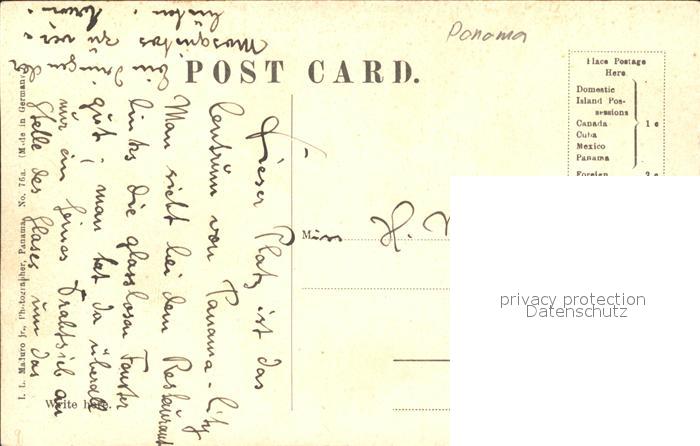 Panama
POST CARD.
Place Postage
Here
Domestic
Island Pos-
sessions
Canada
Cuba
Mexico
Panama
1 c
Foreign 2 c
Miss H.
privacy protection
Datenschutz
Dieser Platz ist das
Centrum von Panama-City
Man sieht bei dem Restaurant
links die glaslosen Fenster
gut; man hat da überall
nur ein feines Drahtsieb an
Stelle des Glases um das
Eindringen der
Mosquitos zu ver-
hindern.
Write here.
I. L. Maduro Jr., Photographer, Panama. No. 76a. (Made in Germany)